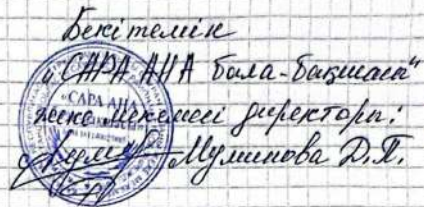 Бекітемін
"САРА АНА бала-бақшасы"
жеке мекемесі директоры:
Муминова Д.П.
«САРА АНА